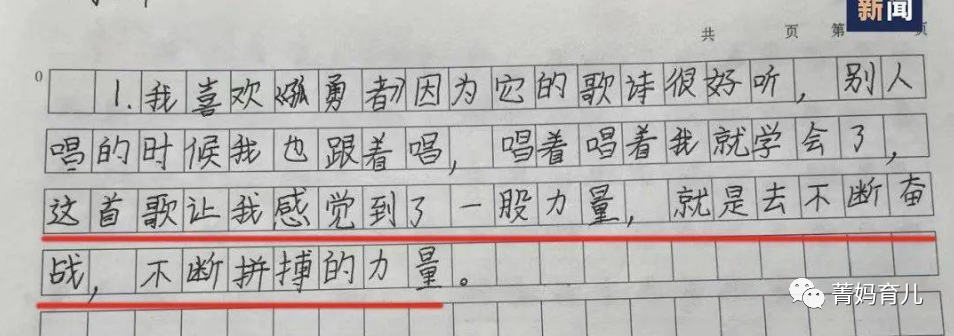 新闻
共 页 第 页
0
1.我喜欢《孤勇者》因为它的歌诗很好听，别人
唱的时候我也跟着唱，唱着唱着我就学会了，
这首歌让我感觉到了一股力量，就是去不断奋
战，不断拼搏的力量。
菁妈育儿